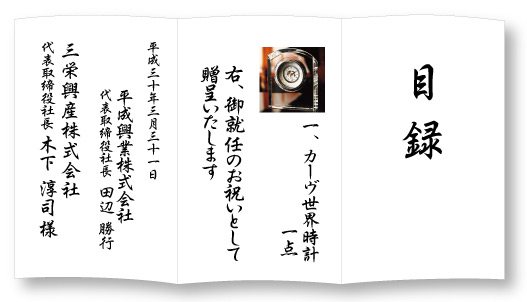 目録
一、カーヴ世界時計
一点
右、御就任のお祝いとして
贈呈いたします
平成三十年三月三十一日
平成興業株式会社
代表取締役社長 田辺 勝行
三栄興産株式会社
代表取締役社長 木下 淳司 様